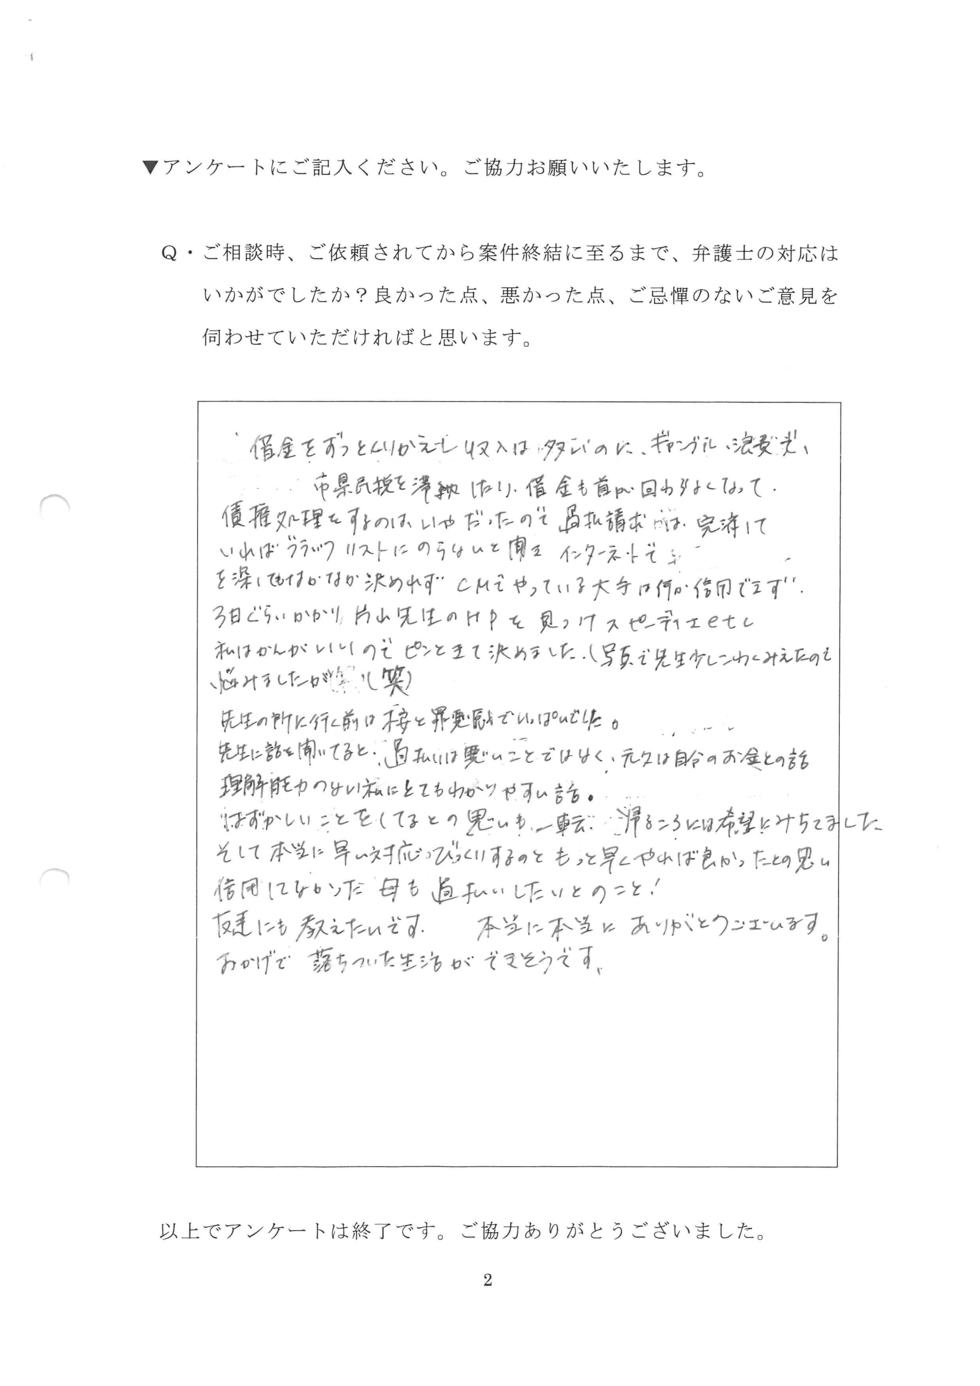 ▼アンケートにご記入ください。ご協力お願いいたします。
Q・ご相談時、ご依頼されてから案件終結に至るまで、弁護士の対応は
いかがでしたか？良かった点、悪かった点、ご忌憚のないご意見を
伺わせていただければと思います。
借金をずっとくりかえし収入は多いのに、ギャンブル、浪費
市県民税を滞納したり、借金も首が回わらなくなって、
債権処理をするのはいやだったので過払請求は、完済して
いればブラックリストにのらないと聞き インターネットで
を深してもなかなか決めれず CMでやっている大手は何か信用できず
3日ぐらいかかり 片山先生のHPを見つけ スピーディ etc
私はかんがいいのでピンときて決めました。(写真で先生少しこわくみえたので
悩みましたが (笑)
先生の所に行く前は 不安と罪悪感でいっぱいでした。
先生に話を聞いてると、過払いは悪いことではなく、元々は自分のお金との話
理解能力のない私にとてもわかりやすい話。
はずかしいことをしてるとの思いも 一転 帰るころには希望にみちてました
そして本当に早い対応 びっくりするのと もっと早くやれば良かったとの思い
信用してなかった 母も過払いしたいとのこと!
友達にも教えたいです。 本当に本当に ありがとうございます。
おかげで 落ちついた生活ができそうです。
以上でアンケートは終了です。ご協力ありがとうございました。
2